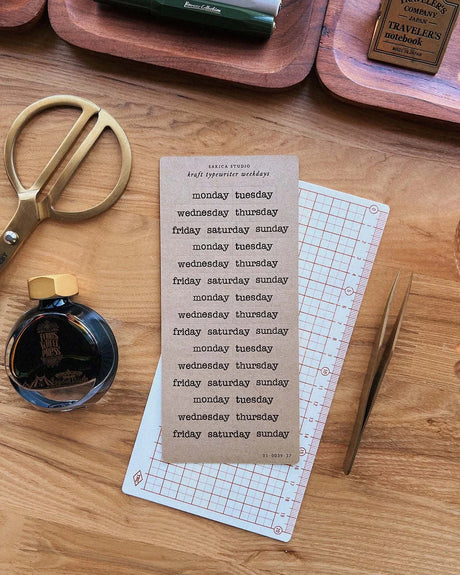 TRAVELER'S
COMPANY
JAPAN
TRAVELER'S
notebook
MADE IN JAPAN
SAKICA STUDIO
kraft typewriter weekdays
monday tuesday
wednesday thursday
friday saturday sunday
monday tuesday
wednesday thursday
friday saturday sunday
monday tuesday
wednesday thursday
friday saturday sunday
monday tuesday
wednesday thursday
friday saturday sunday
monday tuesday
wednesday thursday
friday saturday sunday